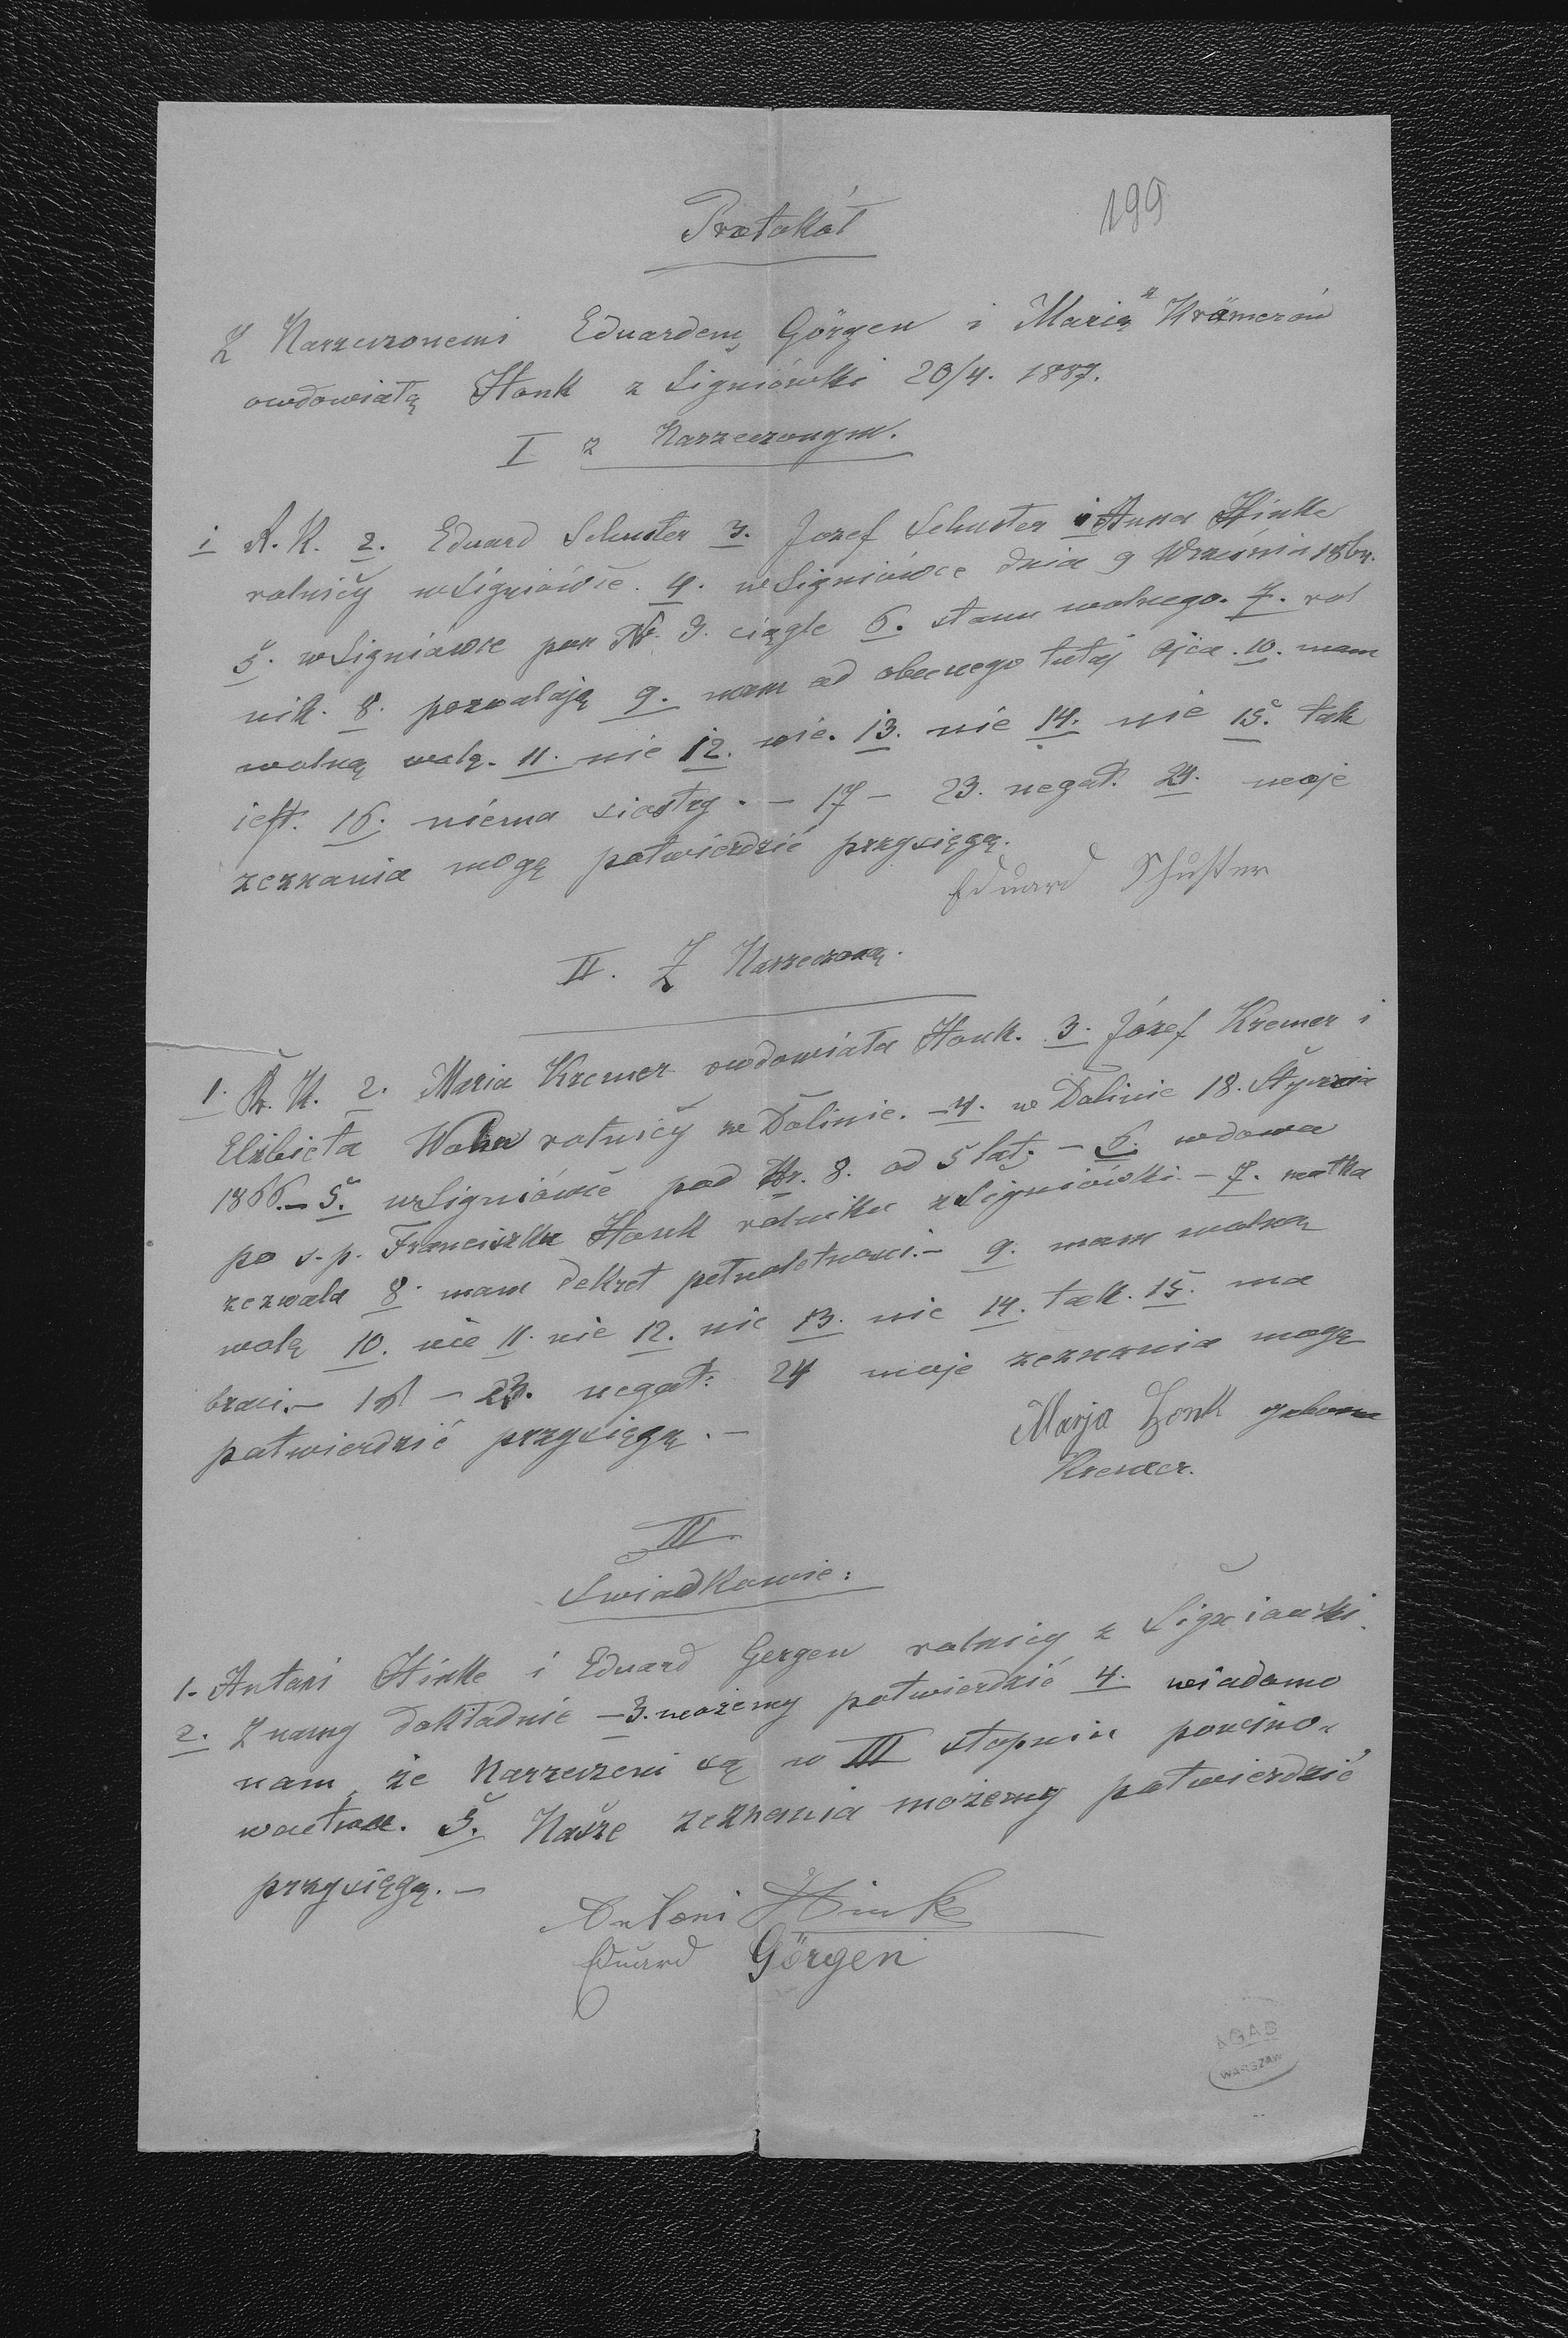 Protokół
199
Z Narzeczonemi Eduardem Görgen i Marią z Krämerów
owdowiałą Honk z Ligniówki 20/4. 1887.
I z Narzeczonym.
1 R. K. 2. Eduard Schuster 3. Jozef Schuster i Anna Hinke
rolnicy w Ligniówce. 4. w Ligniówce dnia 9 Września
5. w Ligniówce pod Nr. 3. ciągle 6. stanu wolnego. 7. rol
nik. 8. pozwalają 9. mam od obecnego tutaj Ojca. 10. mam
wolną wolę. 11. nie 12. nie. 13. nie 14. nie 15. tak
jest. 16. niema siostry. – 17 – 23. negat. 24. moje
zeznania mogę potwierdzić przysięgą.
Eduard Schuster
II. Z Narzeczoną.
1. R. K. 2. Maria Kremer owdowiała Honk. 3. Józef Kremer i
Elżbieta rolnicy w Dolinie. – 4. w Dolinie 18. Stycznia
1866. – 5. w Ligniówce pod Nr. 8. od 5 lat; – 6. wdowa
po s. p. Franciszku Honk rolniku z Ligniówki. – 7. matka
zezwala 8. mam dekret pełnoletnosci. – 9. mam wolną
wolę 10. nie 11. nie 12. nie 13. nie 14. tak. 15. ma
braci. – 16 – 23. negat: 24 moje zeznania mogę
potwierdzić przysięgą. –
Marja Honk geborne
Kremer.
III
Swiadkowie:
1. Antoni Hinke i Eduard Gergen rolnicy z Ligniówki.
2. Znamy dokładnie – 3. możemy potwierdzić 4. wiadomo
nam, że Narzeczeni są w III stopniu powino-
wactwa. 5. Nasze zeznania możemy potwierdzić
przysięgą. –
Antoni Hink
Eduard Görgen
AGAD
WARSZAWA